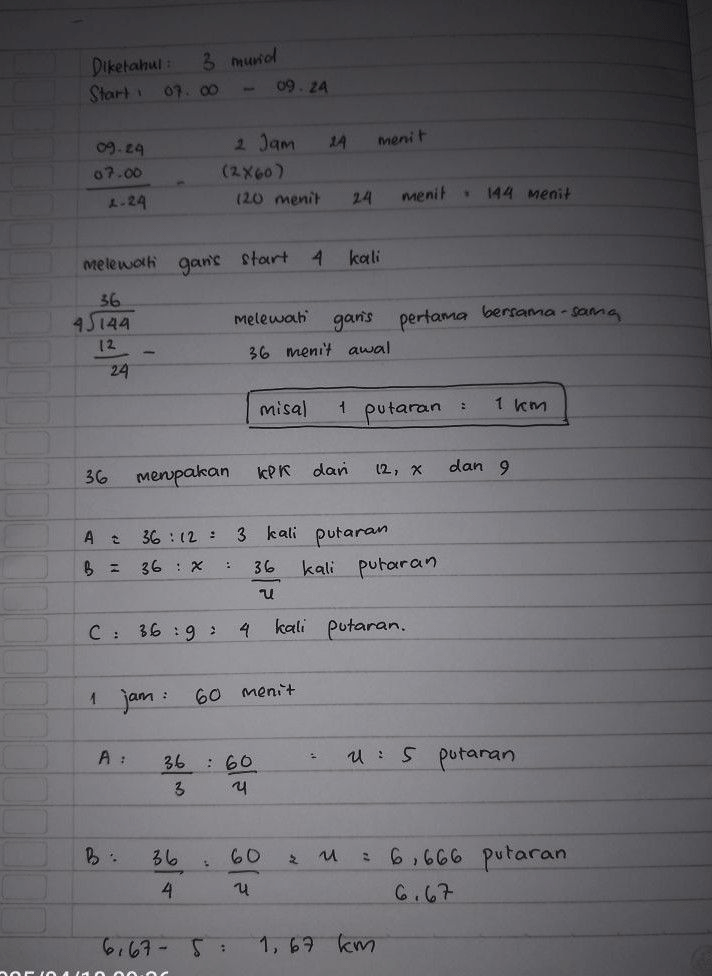 Diketahui : 3 murid
Start : 07.00 - 09.24
09.24 2 Jam 24 menit
07.00 - (2x60)
2.24 120 menit 24 menit = 144 menit
melewati garis start 4 kali
36
4√144 melewati garis pertama bersama-sama
12 - 36 menit awal
24
misal 1 putaran = 1 km
36 merupakan KPK dari 12, x dan 9
A = 36 : 12 = 3 kali putaran
B = 36 : x = 36/x kali putaran
C = 36 : 9 = 4 kali putaran.
1 jam = 60 menit
A : 36/3 : 60/x = x = 5 putaran
B : 36/4 : 60/x = x = 6,666 putaran
6,67
6,67 - 5 = 1,67 km